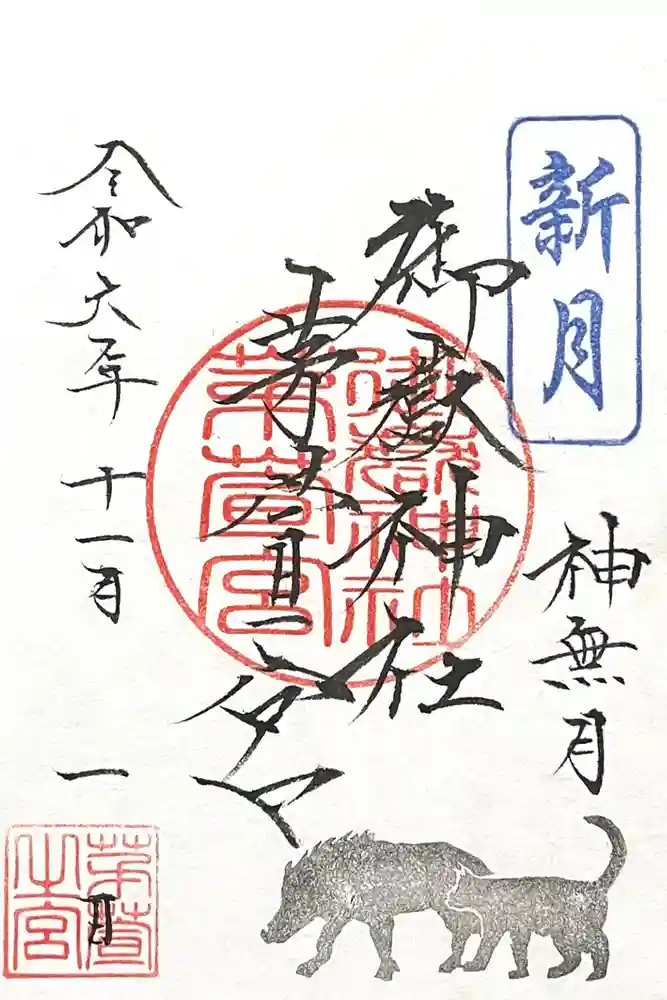 新月
神無月
御嶽神社
茅萱宮
御嶽神社
茅萱宮
令和六年十一月一日
茅萱
之宮